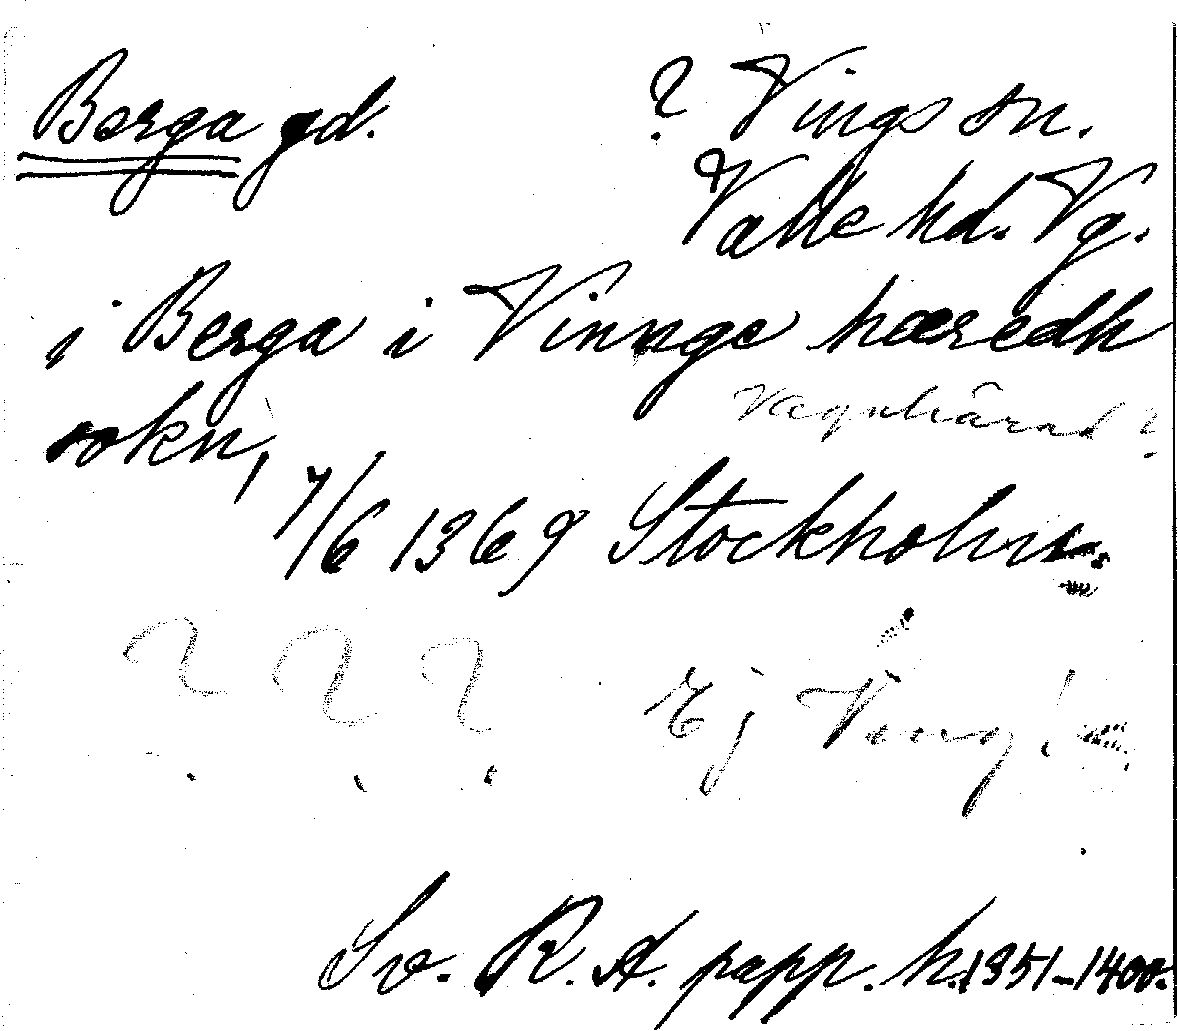 Berga gd. ? Vings sn.
Valle hd. Vg.
i Berga i Vinnge hæredh
Vagnhärad ?
sokn,
7/6 1369 Stockholm.
? ? ? Ej Ving!
Sv. R. A. papp. h. 1351-1400.